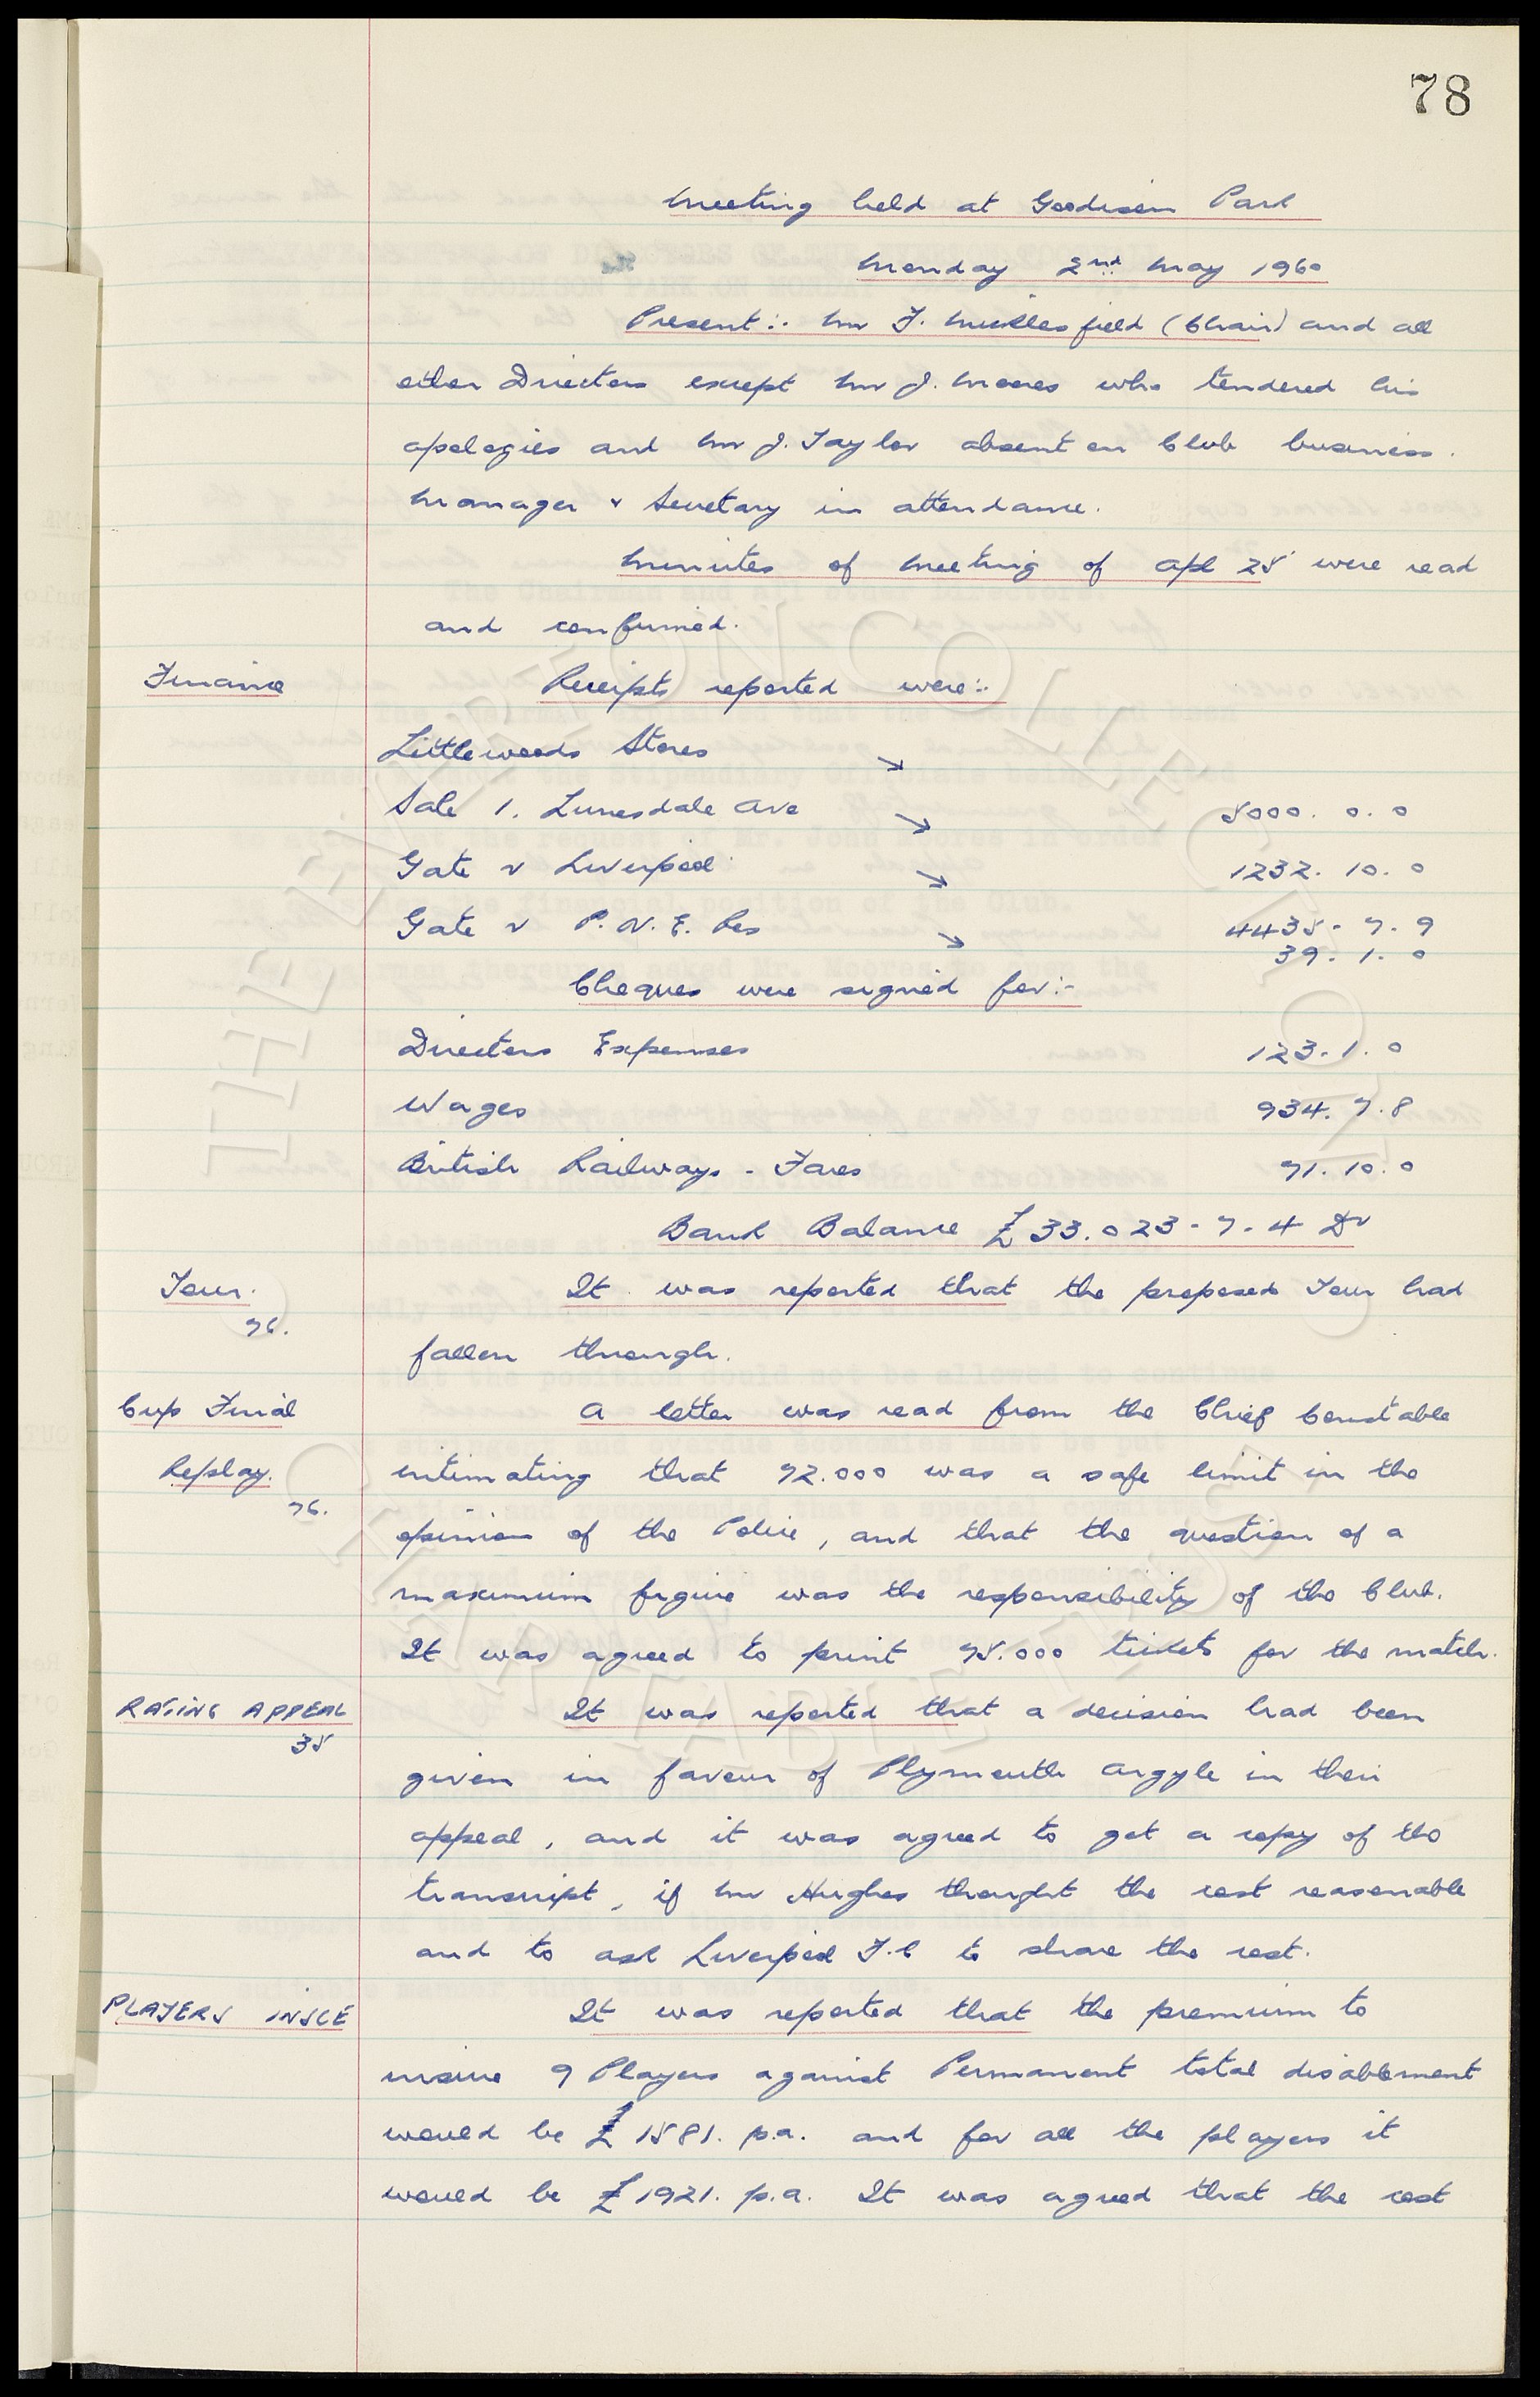 78
Meeting held at Goodison Park
Monday 2nd May 1960
Present:- Mr F. Micklesfield (Chair) and all
other Directors except Mr J. Moores who tendered his
apologies and Mr J. Taylor absent on Club business.
Manager & Secretary in attendance.
Minutes of Meeting of Apl 25 were read
and confirmed.
Finance
Receipts reported were:-
Littlewoods Stores
Sale 1. Lunesdale Ave 5000. 0. 0
Gate v Liverpool 1232. 10. 0
Gate v P.N.E. Res 4435. 7. 9
39. 1. 0
Cheques were signed for:-
Directors Expenses 123. 1. 0
Wages 934. 7. 8
British Railways - Fares 71. 10. 0
Bank Balance £33.023-7-4 Dr
Tour.
76.
It was reported that the proposed Tour had
fallen through.
Cup Final
Replay.
76.
A letter was read from the Chief Constable
intimating that 72.000 was a safe limit in the
opinion of the Police, and that the question of a
maximum figure was the responsibility of the Club.
It was agreed to print 75.000 tickets for the match.
RATING APPEAL
35
It was reported that a decision had been
given in favour of Plymouth Argyle in their
appeal, and it was agreed to get a copy of the
transcript, if Mr Hughes thought the cost reasonable
and to ask Liverpool F.C to share the cost.
PLAYERS INSCE
It was reported that the premium to
insure 9 Players against Permanent total disablement
would be £1581. p.a. and for all the players it
would be £1921. p.a. It was agreed that the cost
THE EVERTON COLLECTION
CHARITABLE TRUST